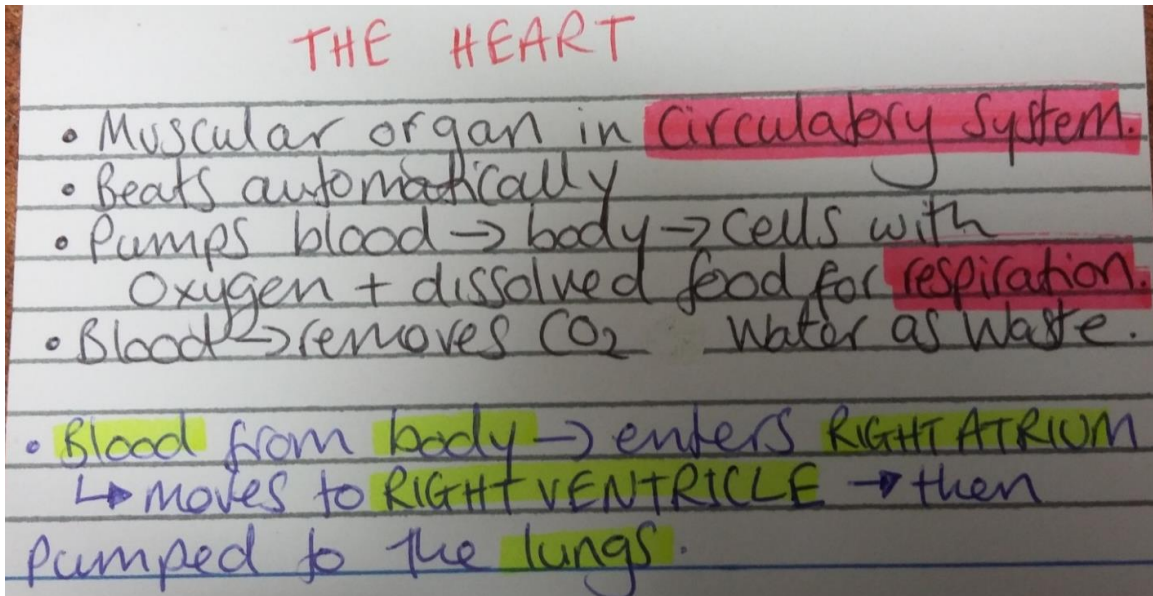 THE HEART
• Muscular organ in circulatory system.
• Beats automatically
• Pumps blood → body → cells with
oxygen + dissolved food for respiration.
• Blood → removes CO₂ water as waste.
• Blood from body → enters RIGHT ATRIUM
↳ moves to RIGHT VENTRICLE → then
pumped to the lungs.